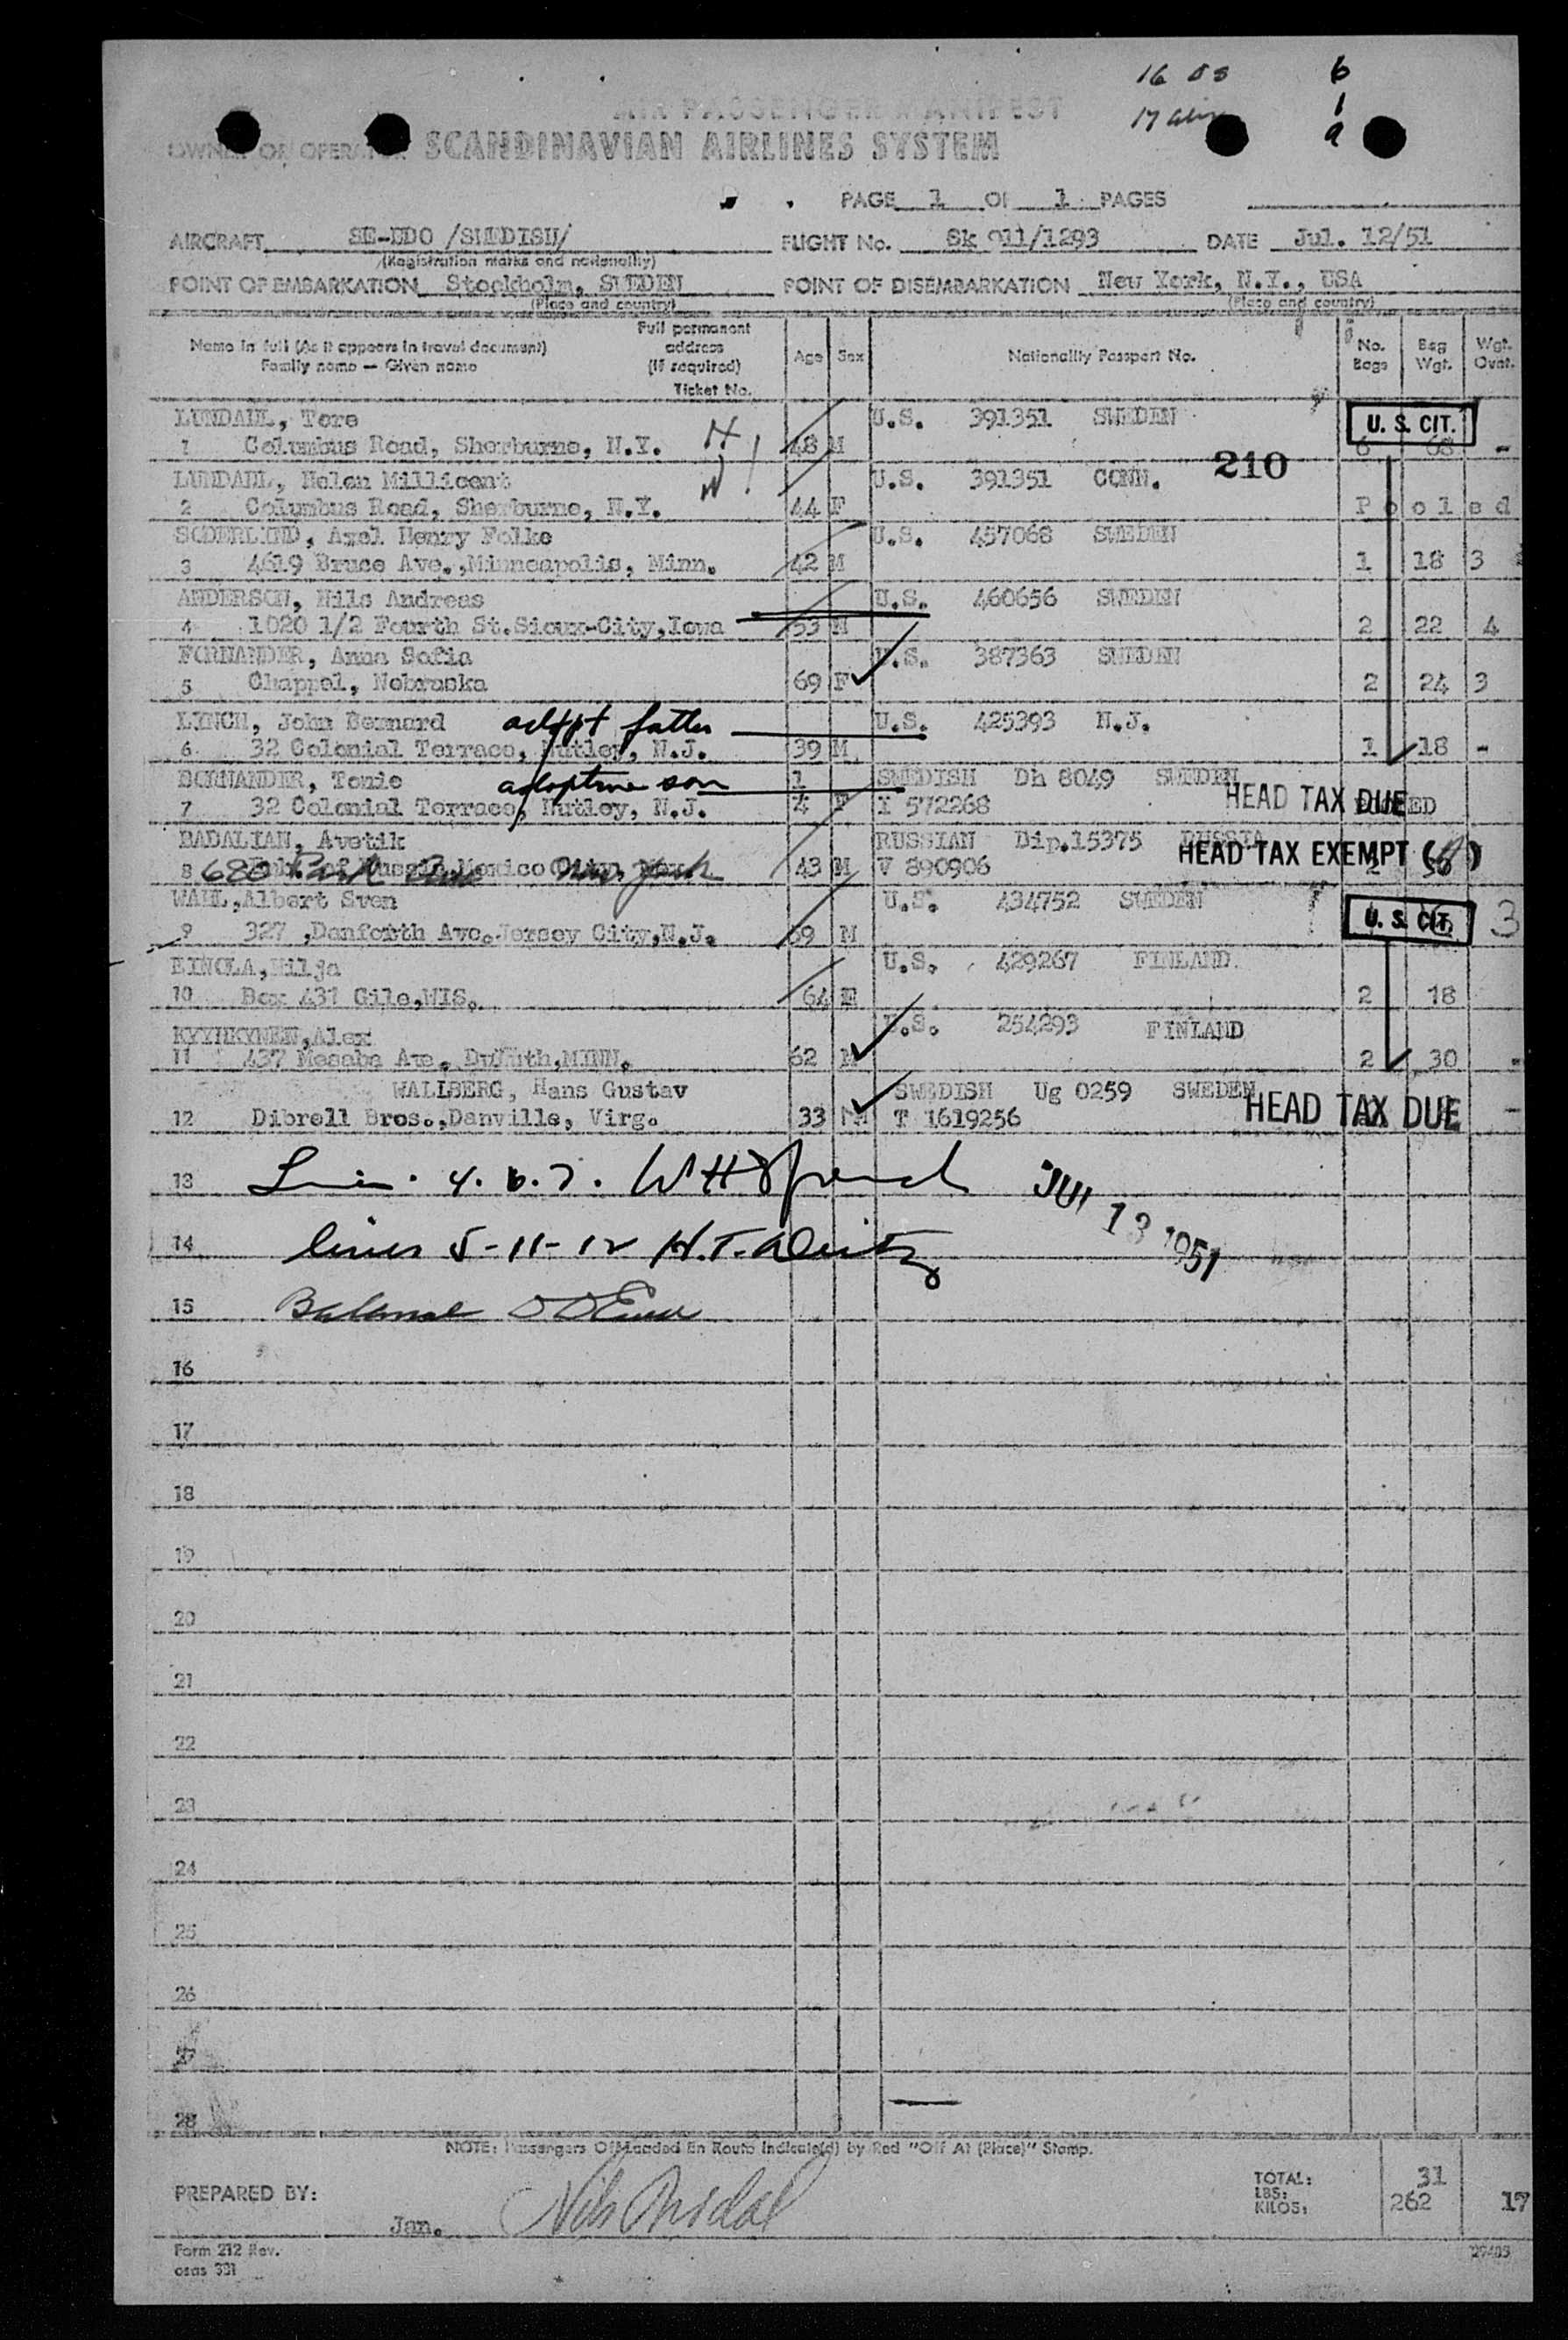 16 
17
6
1
9
AIR PASSENGER MANIFEST
OWNER OR OPERATOR SCANDINAVIAN AIRLINES SYSTEM
PAGE 1 OF 1 PAGES
AIRCRAFT SE-BDO /SWEDISH/ FLIGHT No. Sk 911/1293 DATE Jul. 12/51
(Registration marks and nationality)
POINT OF EMBARKATION Stockholm, SWEDEN POINT OF DISEMBARKATION New York, N.Y., USA
(Place and country) (Place and country)
Name in full (As it appears in travel document) Full permanent address (If required) Age Sex Nationality Passport No. No. Bags Bag Wgt. Wgt. Ovat.
Family name — Given name Ticket No.
LUNDAHL, Tore U.S. 391351 SWEDEN U. S. CIT.
1 Columbus Road, Sherburne, N.Y. H 48 M 6 68 -
LUNDAHL, Helen Millicent W U.S. 391351 CONN. 210
2 Columbus Road, Sherburne, N.Y. 44 F Pooled
SODERLUND, Axel Henry Folke U.S. 457068 SWEDEN
3 4619 Bruce Ave., Minneapolis, Minn. 42 M 1 18 3
ANDERSON, Nils Andreas U.S. 460656 SWEDEN
4 1020 1/2 Fourth St. Sioux-City, Iowa 53 M 2 22 4
FORNANDER, Anna Sofia U.S. 387363 SWEDEN
5 Chappel, Nebraska 69 F 2 24 3
LINCH, John Bernard adopt father U.S. 425393 N.J.
6 32 Colonial Terrace, Nutley, N.J. 39 M 1 18 -
BORNANDER, Tonie adoptive son 1 SWEDISH Dh 8049 SWEDEN
7 32 Colonial Terrace, Nutley, N.J. 4 F I 572268 HEAD TAX DUE
BADALIAN, Avetik RUSSIAN Dip.15375 RUSSIA
8 680 Park Ave New York 43 M V 890906 HEAD TAX EXEMPT
WAHL, Albert Sven U.S. 434752 SWEDEN
9 327, Danforth Ave. Jersey City, N.J. 69 M U. S. CIT. 3
EINOLA, Hilja U.S. 429267 FINLAND
10 Box 431 Gile, WIS. 64 F 2 18
KYYHKYNEN, Alex U.S. 254293 FINLAND
11 437 Mesaba Ave. Duluth, MINN. 62 M 2 30 -
WALLBERG, Hans Gustav SWEDISH Ug 0259 SWEDEN
12 Dibrell Bros., Danville, Virg. 33 M T 1619256 HEAD TAX DUE -
13 4. 6. 7. JUL 13 1951
14 lines 5-11-12 H.T.
15 Balance
16
17
18
19
20
21
22
23
24
25
26
27
28
NOTE: Passengers Offloaded En Route Indicate(d) by Red "Off At (Place)" Stamp.
PREPARED BY: Jan. TOTAL: 31
LBS:
KILOS: 262 17
Form 212 Rev.
osas 331